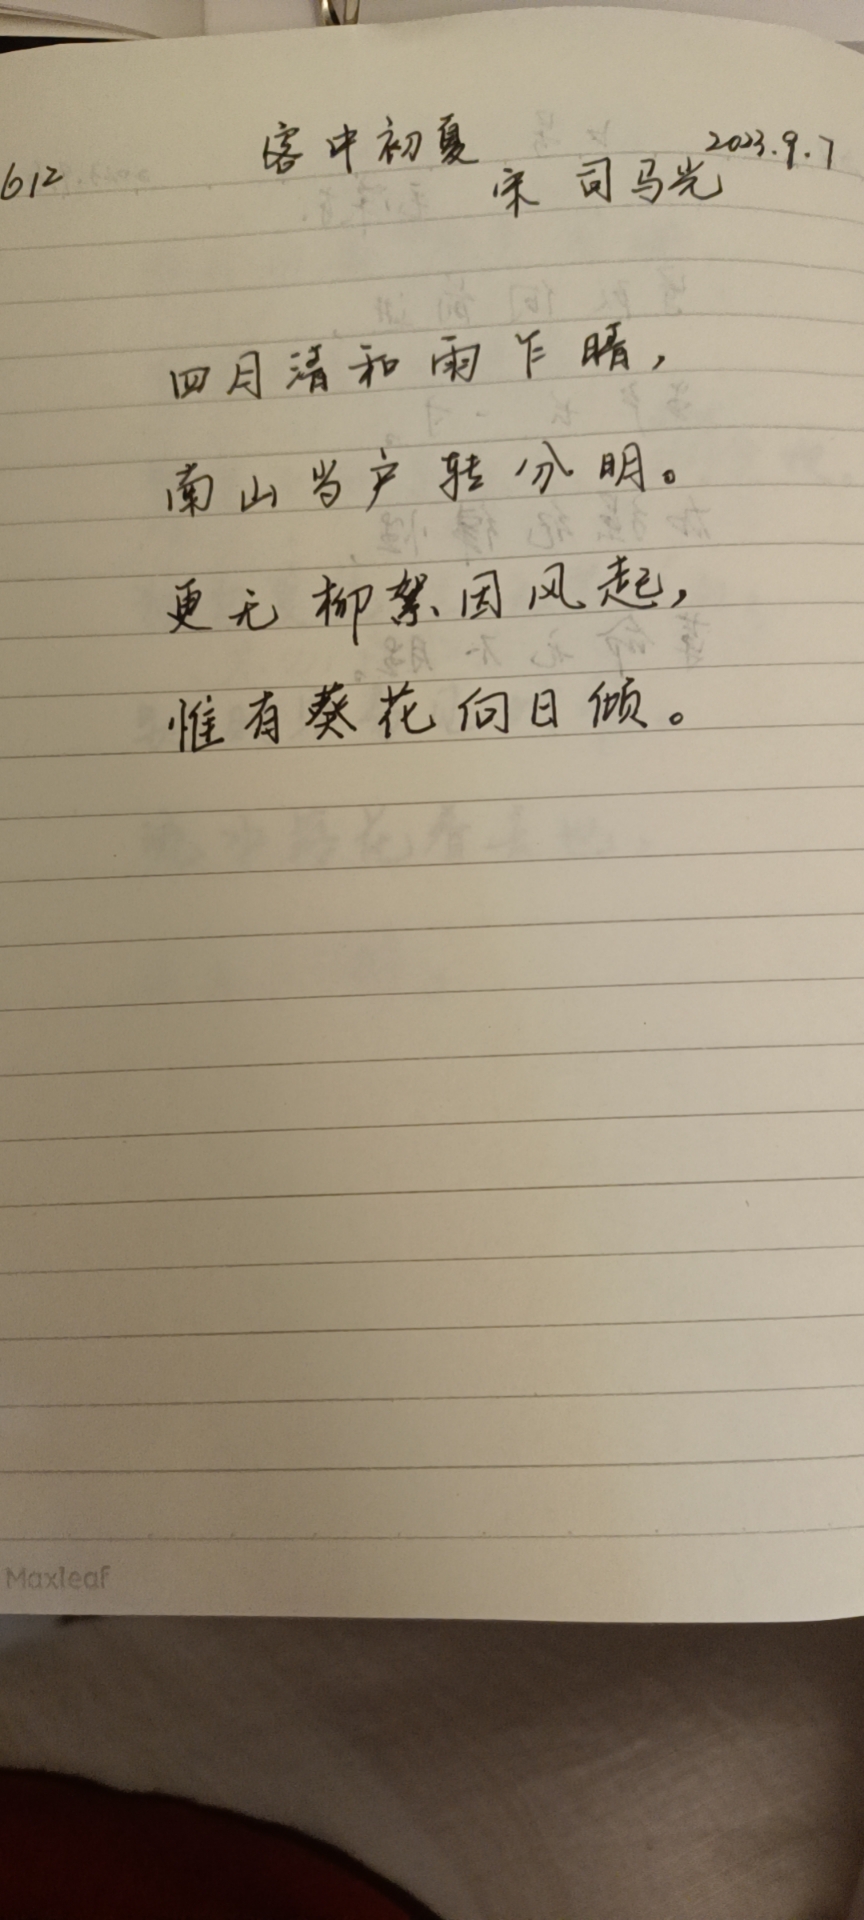 客中初夏
2023.9.7
612
宋 司马光
四月清和雨乍晴，
南山当户转分明。
更无柳絮因风起，
惟有葵花向日倾。
Maxleaf